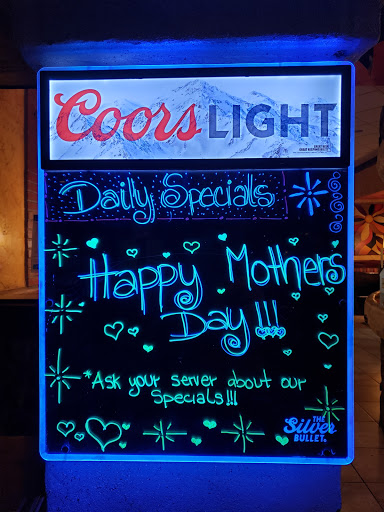 Coors LIGHT
Daily Specials
Happy Mothers
Day!!!
*Ask your server about our
Specials!!!
THE
Silver
BULLET